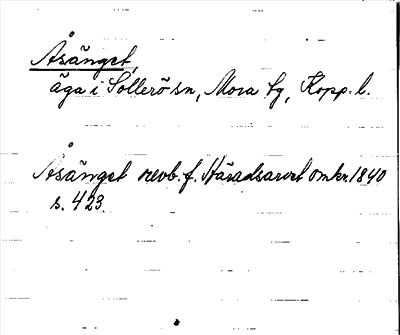 Åsänget,
äga i Sollerö sn, Mora tg, Kopp. l.
Åsänget revb. f. Häradsarvet omkr. 1840
s. 423